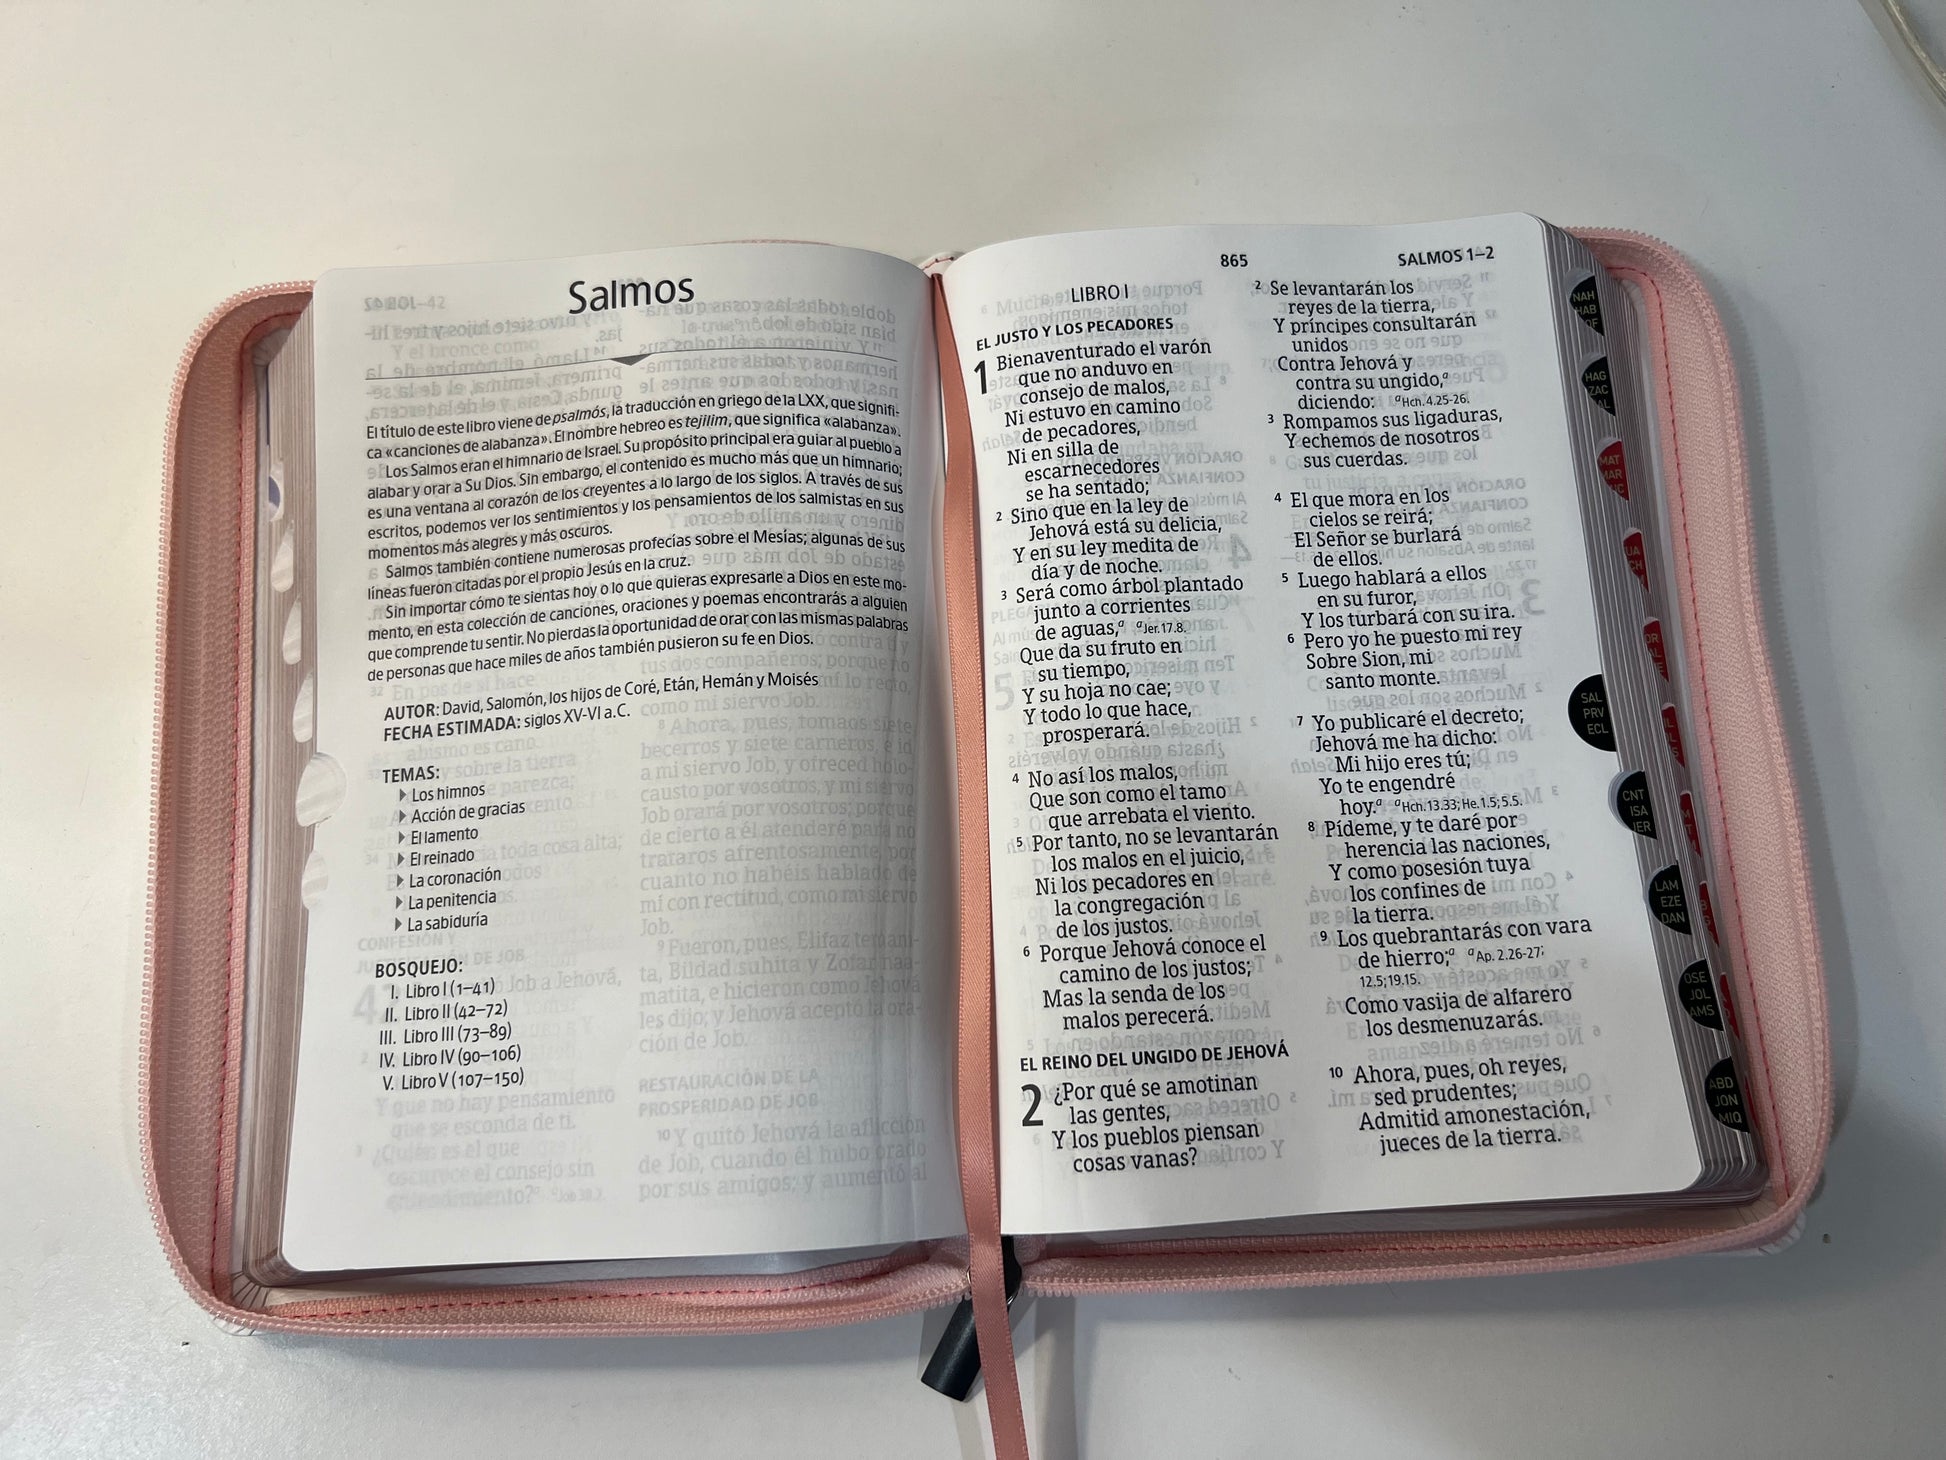 Salmos
El título de este libro viene de psalmós, la traducción en griego de la LXX, que signifi-
ca «canciones de alabanza». El nombre hebreo es tejilim, que significa «alabanza».
Los Salmos eran el himnario de Israel. Su propósito principal era guiar al pueblo a
alabar y orar a Su Dios. Sin embargo, el contenido es mucho más que un himnario;
es una ventana al corazón de los creyentes a lo largo de los siglos. A través de sus
escritos, podemos ver los sentimientos y los pensamientos de los salmistas en sus
momentos más alegres y más oscuros.
Salmos también contiene numerosas profecías sobre el Mesías; algunas de sus
líneas fueron citadas por el propio Jesús en la cruz.
Sin importar cómo te sientas hoy o lo que quieras expresarle a Dios en este mo-
mento, en esta colección de canciones, oraciones y poemas encontrarás a alguien
que comprende tu sentir. No pierdas la oportunidad de orar con las mismas palabras
de personas que hace miles de años también pusieron su fe en Dios.
AUTOR: David, Salomón, los hijos de Coré, Etán, Hemán y Moisés
FECHA ESTIMADA: siglos XV-VI a.C.
TEMAS:
Los himnos
Acción de gracias
El lamento
El reinado
La coronación
La penitencia
La sabiduría
BOSQUEJO:
I. Libro I (1–41)
II. Libro II (42–72)
III. Libro III (73–89)
IV. Libro IV (90–106)
V. Libro V (107–150)
865
SALMOS 1–2
LIBRO I
EL JUSTO Y LOS PECADORES
1 Bienaventurado el varón
que no anduvo en
consejo de malos,
Ni estuvo en camino
de pecadores,
Ni en silla de
escarnecedores
se ha sentado;
2 Sino que en la ley de
Jehová está su delicia,
Y en su ley medita de
día y de noche.
3 Será como árbol plantado
junto a corrientes
de aguas,a a Jer. 17.8.
Que da su fruto en
su tiempo,
Y su hoja no cae;
Y todo lo que hace,
prosperará.
4 No así los malos,
Que son como el tamo
que arrebata el viento.
5 Por tanto, no se levantarán
los malos en el juicio,
Ni los pecadores en
la congregación
de los justos.
6 Porque Jehová conoce el
camino de los justos;
Mas la senda de los
malos perecerá.
EL REINO DEL UNGIDO DE JEHOVÁ
2 ¿Por qué se amotinan
las gentes,
Y los pueblos piensan
cosas vanas?
2 Se levantarán los
reyes de la tierra,
Y príncipes consultarán
unidos
Contra Jehová y
contra su ungido,a
diciendo: a Hch. 4.25-26.
3 Rompamos sus ligaduras,
Y echemos de nosotros
sus cuerdas.
4 El que mora en los
cielos se reirá;
El Señor se burlará
de ellos.
5 Luego hablará a ellos
en su furor,
Y los turbará con su ira.
6 Pero yo he puesto mi rey
Sobre Sion, mi
santo monte.
7 Yo publicaré el decreto;
Jehová me ha dicho:
Mi hijo eres tú;
Yo te engendré
hoy.a a Hch. 13.33; He. 1.5; 5.5.
8 Pídeme, y te daré por
herencia las naciones,
Y como posesión tuya
los confines de
la tierra.
9 Los quebrantarás con vara
de hierro;a a Ap. 2.26-27;
12.5; 19.15.
Como vasija de alfarero
los desmenuzarás.
10 Ahora, pues, oh reyes,
sed prudentes;
Admitid amonestación,
jueces de la tierra.
NAH
HAB
HAG
ZAC
MAT
MAR
SAL
PRV
ECL
CNT
ISA
JER
LAM
EZE
DAN
OSE
JOL
AMS
ABD
JON
MIQ